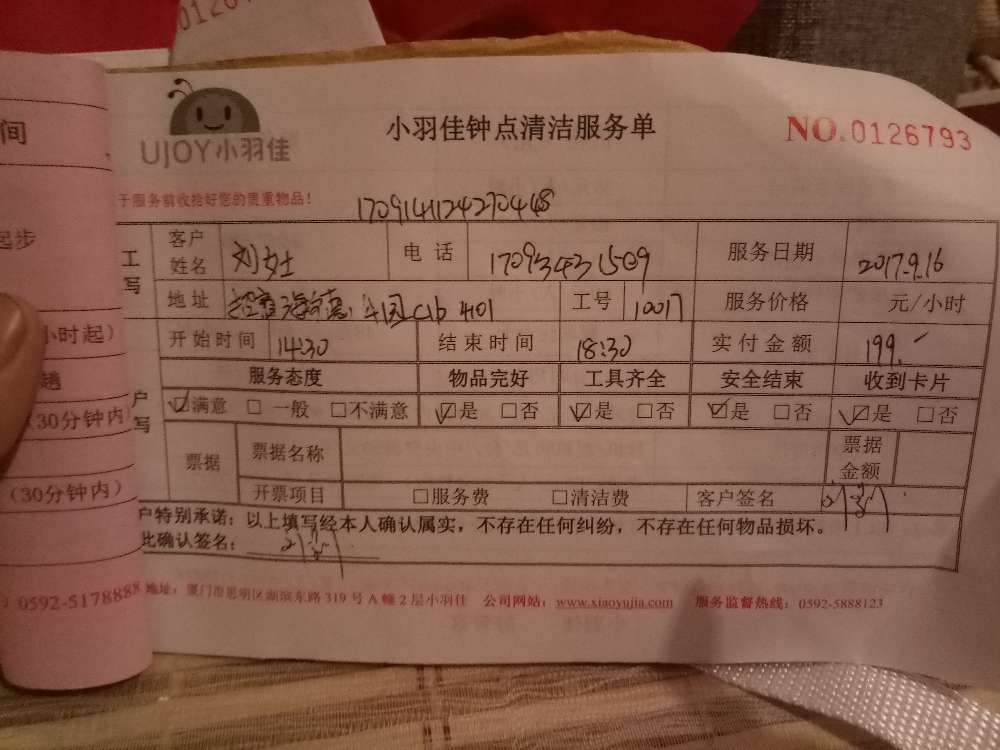 01267
小羽佳钟点清洁服务单
NO.0126793
UJOY小羽佳
于服务前收拾好您的贵重物品！
170914124270448
工 客户姓名 刘女士 电话 17093431509 服务日期 2017.9.16
写 地址 4101 工号 10017 服务价格 元/小时
开始时间 14:30 结束时间 18:30 实付金额 199.-
服务态度 物品完好 工具齐全 安全结束 收到卡片
户 ☑满意 □一般 □不满意 ☑是 □否 ☑是 □否 ☑是 □否 ☑是 □否
写 票据 票据名称 票据金额
开票项目 □服务费 □清洁费 客户签名
户特别承诺：以上填写经本人确认属实，不存在任何纠纷，不存在任何物品损坏。
此确认签名：
0592-5178888 地址：厦门市思明区湖滨东路319号A幢2层小羽佳 公司网站：www.xiaoyujia.com 服务监督热线：0592-5888123
间
起步
小时起）
趟
（30分钟内）
（30分钟内）